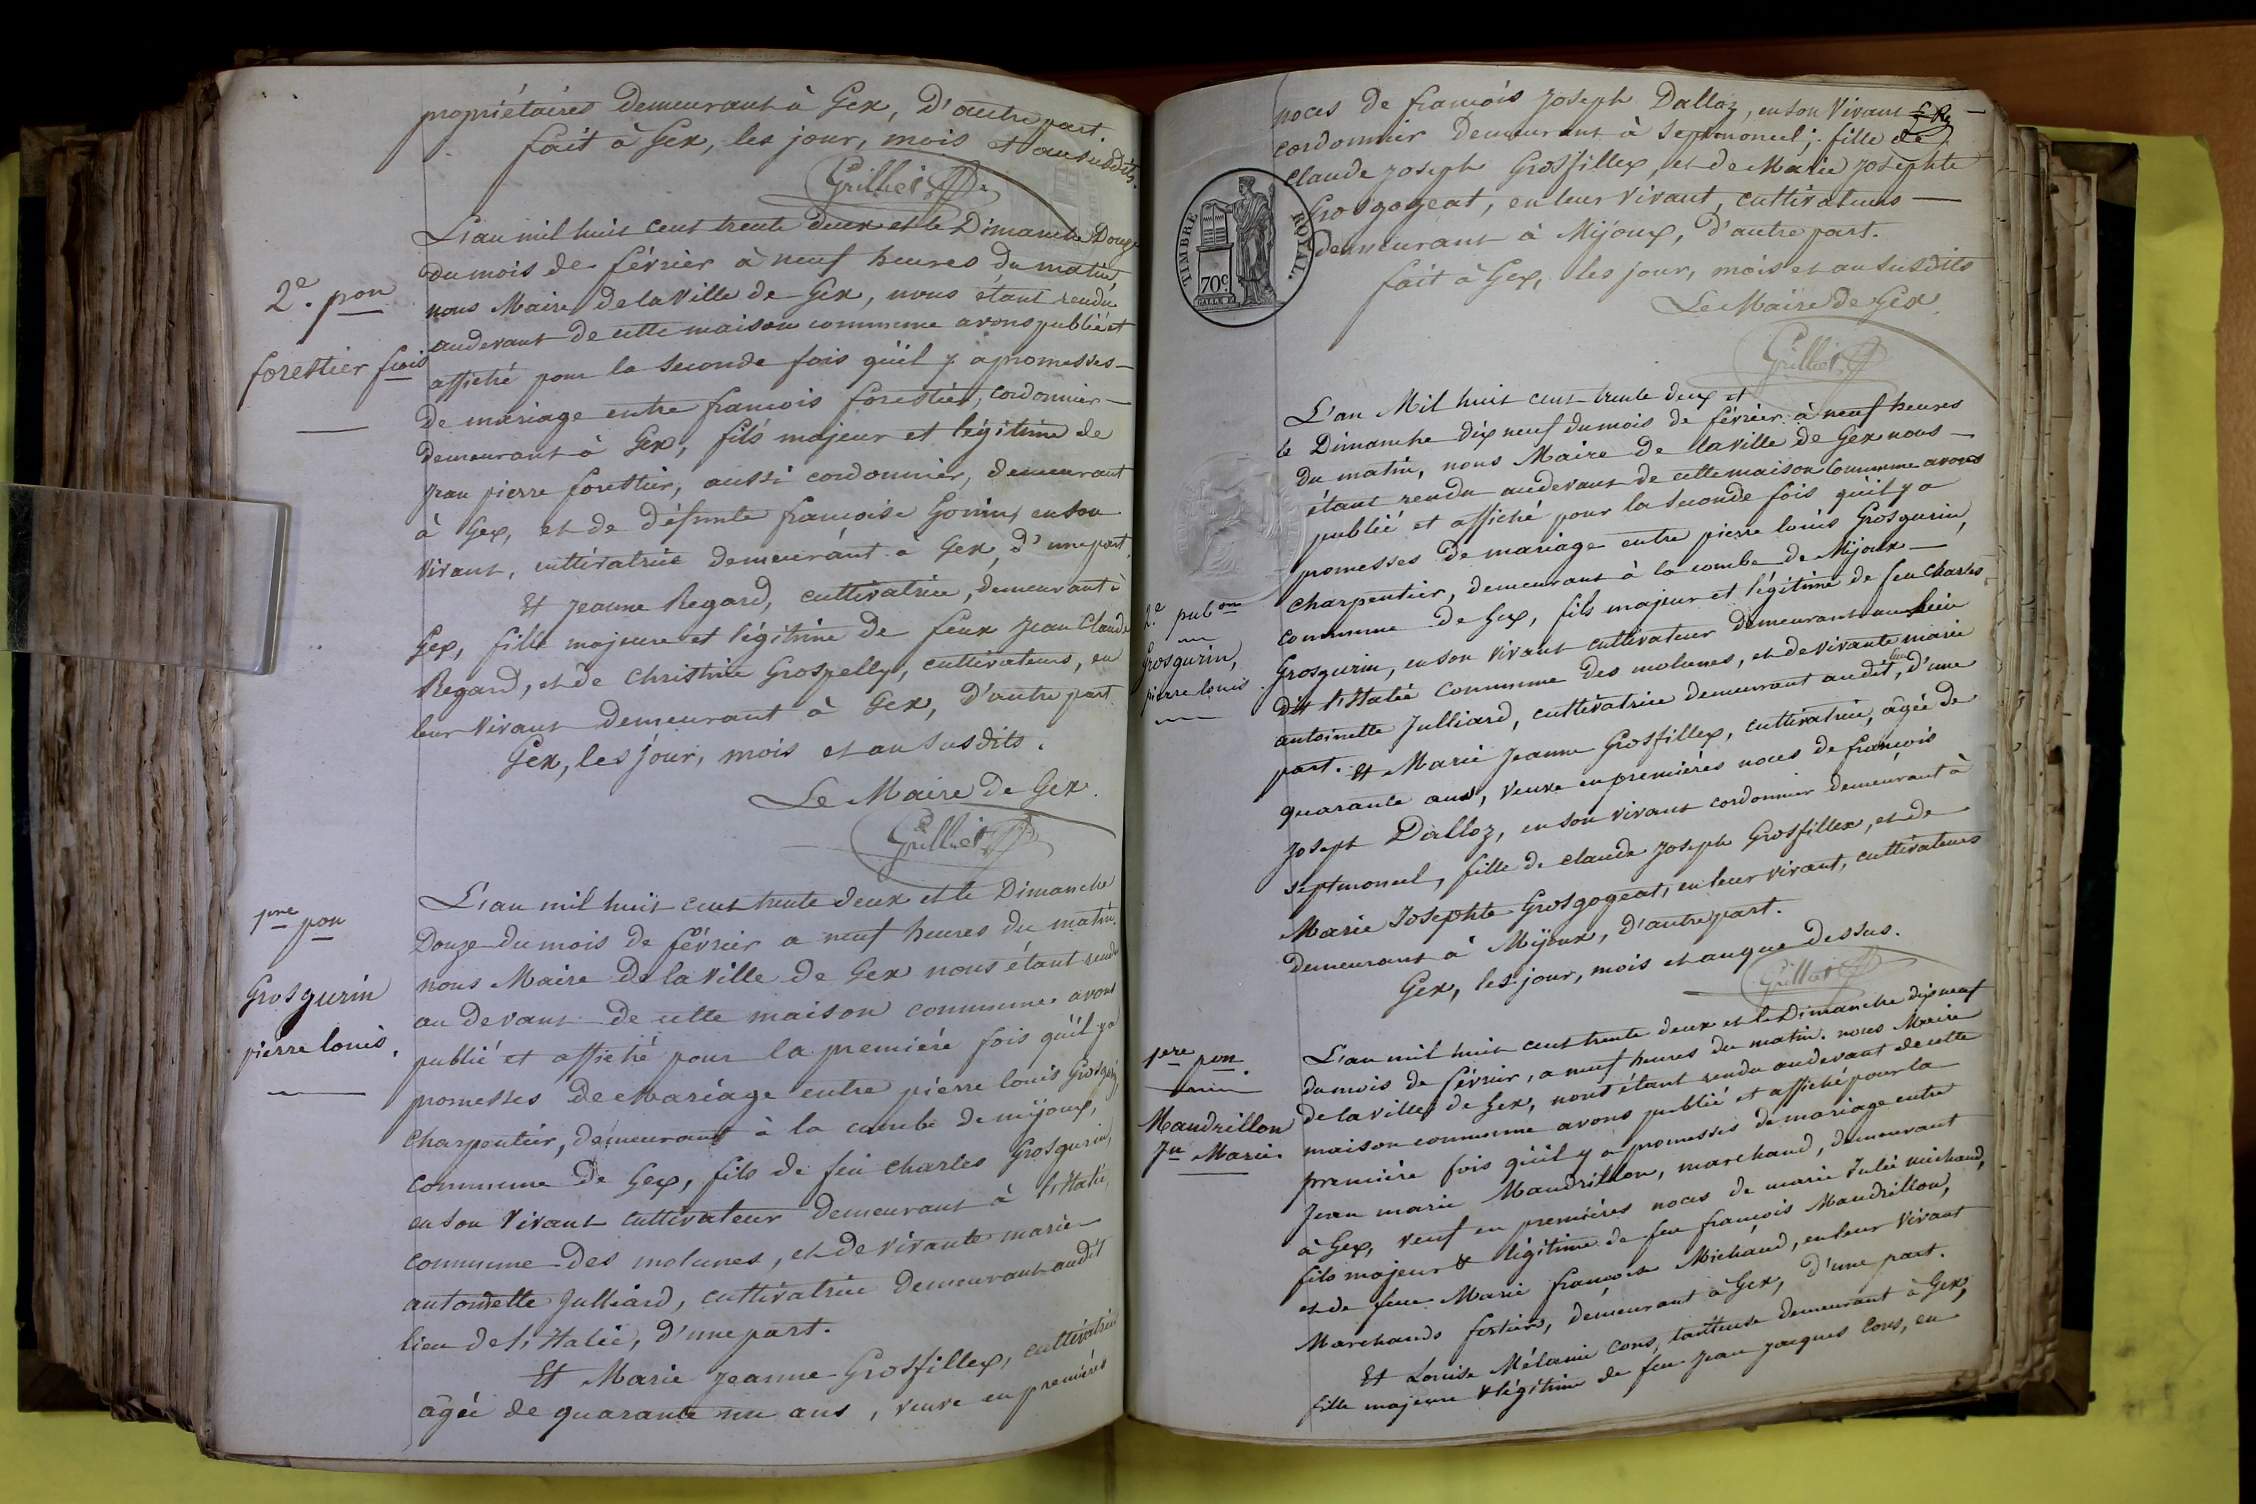 propriétaires demeurant à Gex, D'autre part.
fait à Gex, les jour, mois et an susdits.
Grilliet
L'an mil huit cent trente deux et le Dimanche Douze
du mois de février à neuf heures du matin,
nous Maire de la Ville de Gex, nous étant rendu
audevant de cette maison commune avons publié et
affiché pour la seconde fois qu'il y a promesses
De mariage entre françois forestier, cordonnier
demeurant à Gex, fils majeur et légitime de
jean pierre forestier, aussi cordonnier, demeurant
à Gex, et de défunte francoise Gonin, en son
vivant, cultivatrice demeurant à Gex, d'une part.
Et jeanne Regard, cultivatrice, demeurant à
Gex, fille majeure et légitime de feux jean Claude
Regard, et de christine Grospellex, cultivateurs, en
leur vivant demeurant à Gex, D'autre part
Gex, les jour, mois et an susdits.
Le Maire de Gex.
Grilliet
2e. pon
forestier fcois
L'an mil huit cent trente deux et le Dimanche
Douze du mois de février a neuf heures du matin.
nous Maire De la Ville de Gex nous étant rendu
au devant de cette maison commune avons
publié et affiché pour la première fois qu'il y a
promesses De Mariage entre pierre louis Grosgurin
charpentier, demeurant à la combe de mijoux,
commune de Gex, fils de feu charles Grosgurin,
en son vivant cultivateur demeurant à l'Italie,
commune des molunes, et de vivante marie
antoinette Julliard, cultivatrice demeurant audit
lieu de l'Italie, d'une part.
Et Marie jeanne Grosfillex, cultivatrice
agée de quarante un ans, veuve en premières
1re pon
Grosgurin
pierre louis.
noces de francois joseph Dalloz, en son vivant
cordonnier demeurant à septmoncel; fille de
claude joseph Grosfillex, et de Marie josephte
Grosgogeat, en leur vivant, cultivateurs
demeurant à Mijoux, d'autre part.
fait à Gex, les jour, mois et an susdits
Le Maire de Gex.
Grilliet
TIMBRE ROYAL.
70c.
L'an Mil huit cent trente deux et
le Dimanche dix neuf du mois de février à neuf heures
du matin, nous Maire de la ville de Gex nous
étant rendu audevant de cette maison Commune avons
publié et affiché pour la seconde fois qu'il y a
promesses de mariage entre pierre louis Grosgurin,
charpentier, demeurant à la combe de Mijoux
commune de Gex, fils majeur et légitime de feu charles
Grosgurin, en son vivant cultivateur demeurant au lieu
dit l'Italie commune des molunes, et de vivante marie
antoinette Julliard, cultivatrice demeurant audit lieu, d'une
part. Et Marie jeanne Grosfillex, cultivatrice, agée de
quarante ans, veuve en premières noces de francois
joseph Dalloz, en son vivant cordonnier demeurant à
septmoncel, fille de claude joseph Grosfillex, et de
Marie Josephte Grosgogeat, en leur vivant, cultivateurs
demeurant à Mijoux, d'autre part.
Gex, les jour, mois et an que dessus.
Grilliet
2e pubon
Grosgurin,
pierre louis
L'an mil huit cent trente deux et le Dimanche dix neuf
du mois de février, a neuf heures du matin. nous Maire
de la ville de Gex, nous étant rendu audevant de cette
maison commune avons publié et affiché pour la
première fois qu'il y a promesses de mariage entre
jean marie Mandrillon, marchand, demeurant
à Gex, veuf en premières noces de marie Julie michaud,
fils majeur & légitime de feu francois Mandrillon,
et de feue Marie francoise Michaud, en leur vivant
Marchands demeurant à Gex, d'une part.
Et Louise Mélanie Cons, tailleuse demeurant à Gex,
fille majeure & légitime de feu jean jacques Cons, en
1ere pon.
Mandrillon
Jn Marie.